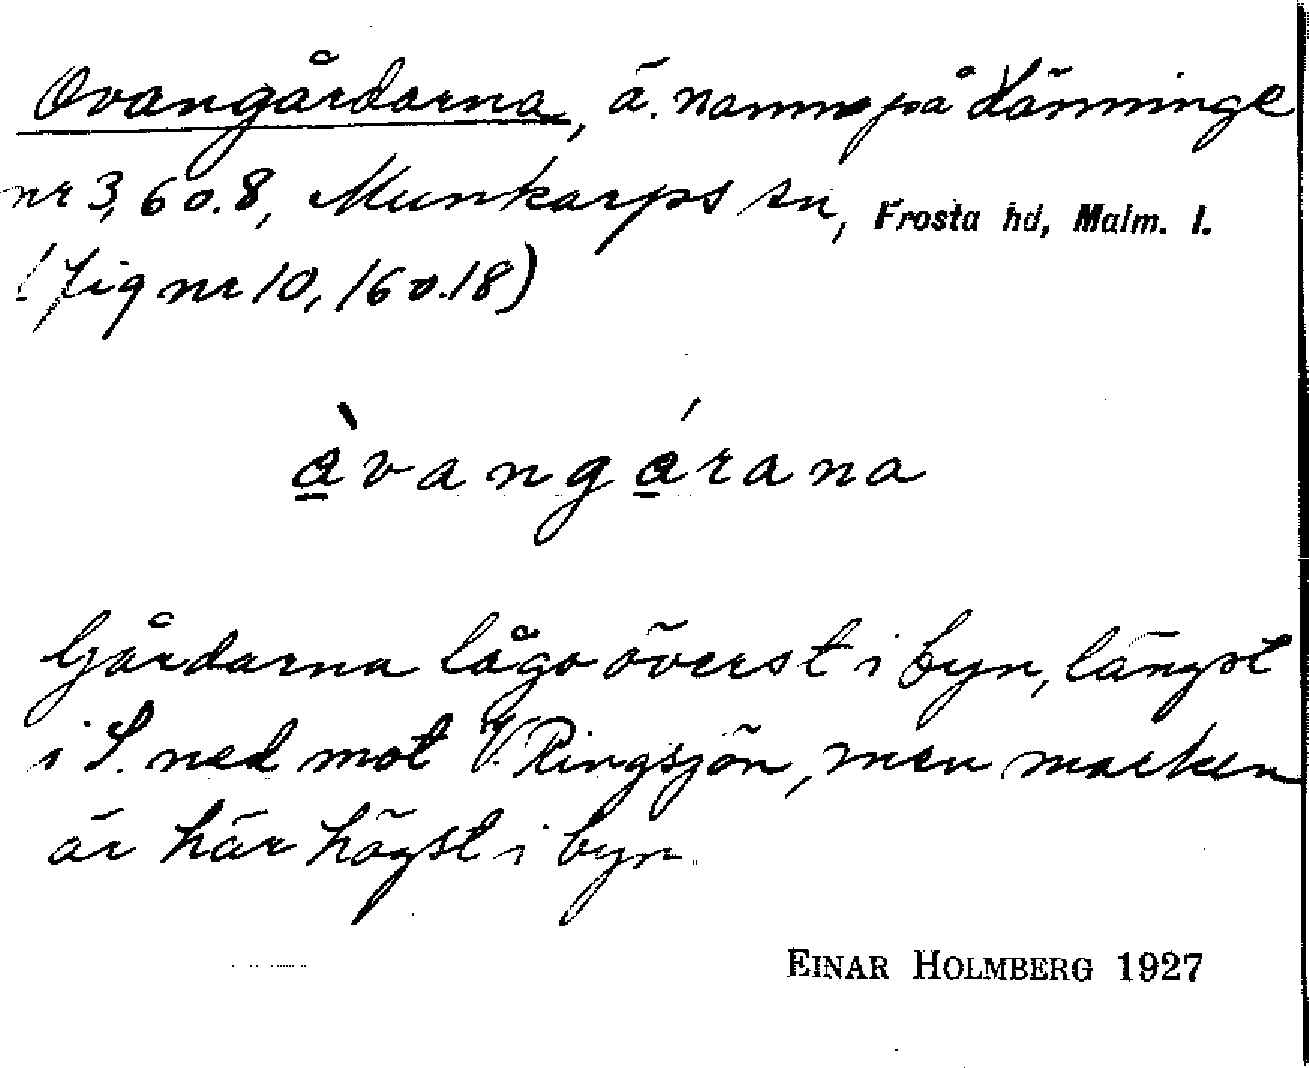 Ovangårdarna, ä. namn på Hänninge
nr 3, 6 o. 8, Munkarps sn, Frosta hd, Malm. l.
(Fig nr 10, 16 o. 18)
a̠̋vangá̠rana
Gårdarna lågo överst i byn, längst
i S. ned mot V. Ringsjön, men marken
är här högst i byn.
EINAR HOLMBERG 1927